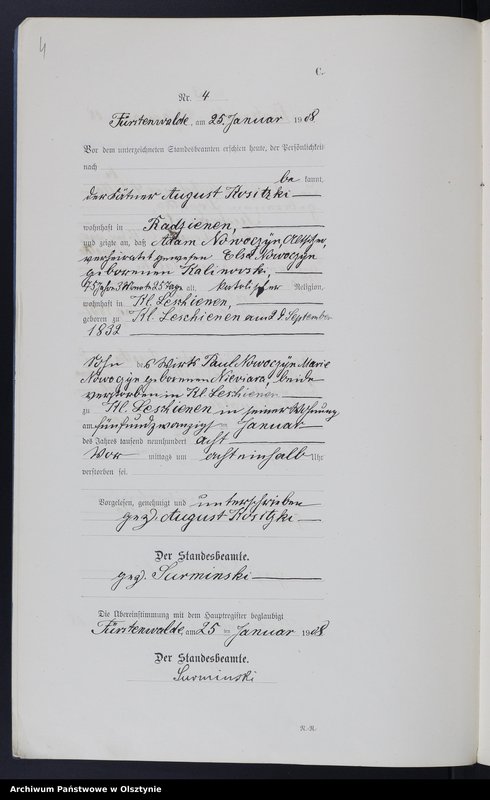 4
C.
Nr. 4
Fürstenwalde, am 25. Januar 1908
Vor dem unterzeichneten Standesbeamten erschien heute, der Persönlichkeit
nach
be kannt,
der Kätner August Kositzki
wohnhaft in Radzienen,
und zeigte an, daß Adam Nowoczyn, Altsitzer,
verheiratet gewesen Elsa Nowoczyn
geborenen Kalinowski,
75 Jahre 3 Monate 25 Tage alt, katolischer Religion,
wohnhaft in Kl. Leschienen,
geboren zu Kl. Leschienen am September
1832
Sohn des Wirts Paul Nowoczyn Marie
Nowoczyn geborenen beide
verstorben in Kl Leschienen
zu Kl. Leschienen in seiner Wohnung
am fünfundzwanzigst en Januar
des Jahres tausend neunhundert acht
Vor mittags um achteinhalb Uhr
verstorben sei.
Vorgelesen, genehmigt und unterschrieben
gez. August Kositzki
Der Standesbeamte.
gez. Surminski
Die Übereinstimmung mit dem Hauptregister beglaubigt
Fürstenwalde, am 25 ten Januar 1908
Der Standesbeamte.
Surminski
N.-R.
Archiwum Państwowe w Olsztynie